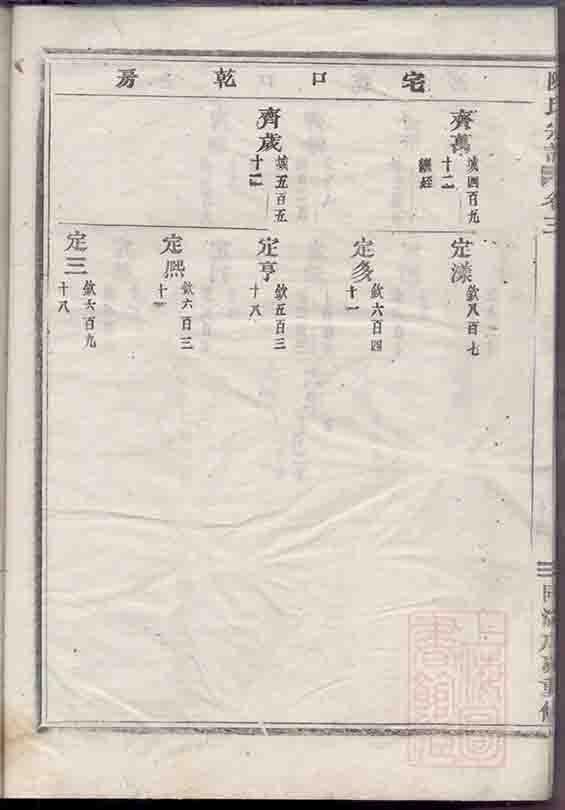 宅口乾房
齊萬
城四百九
十二
繼經
齊歲
城五百五
定濚
欽八百七
十一
定多
欽六百四
十一
定亨
欽五百三
十八
定熙
欽六百三
定三
欽六百九
十八
陳氏宗譜
卷三